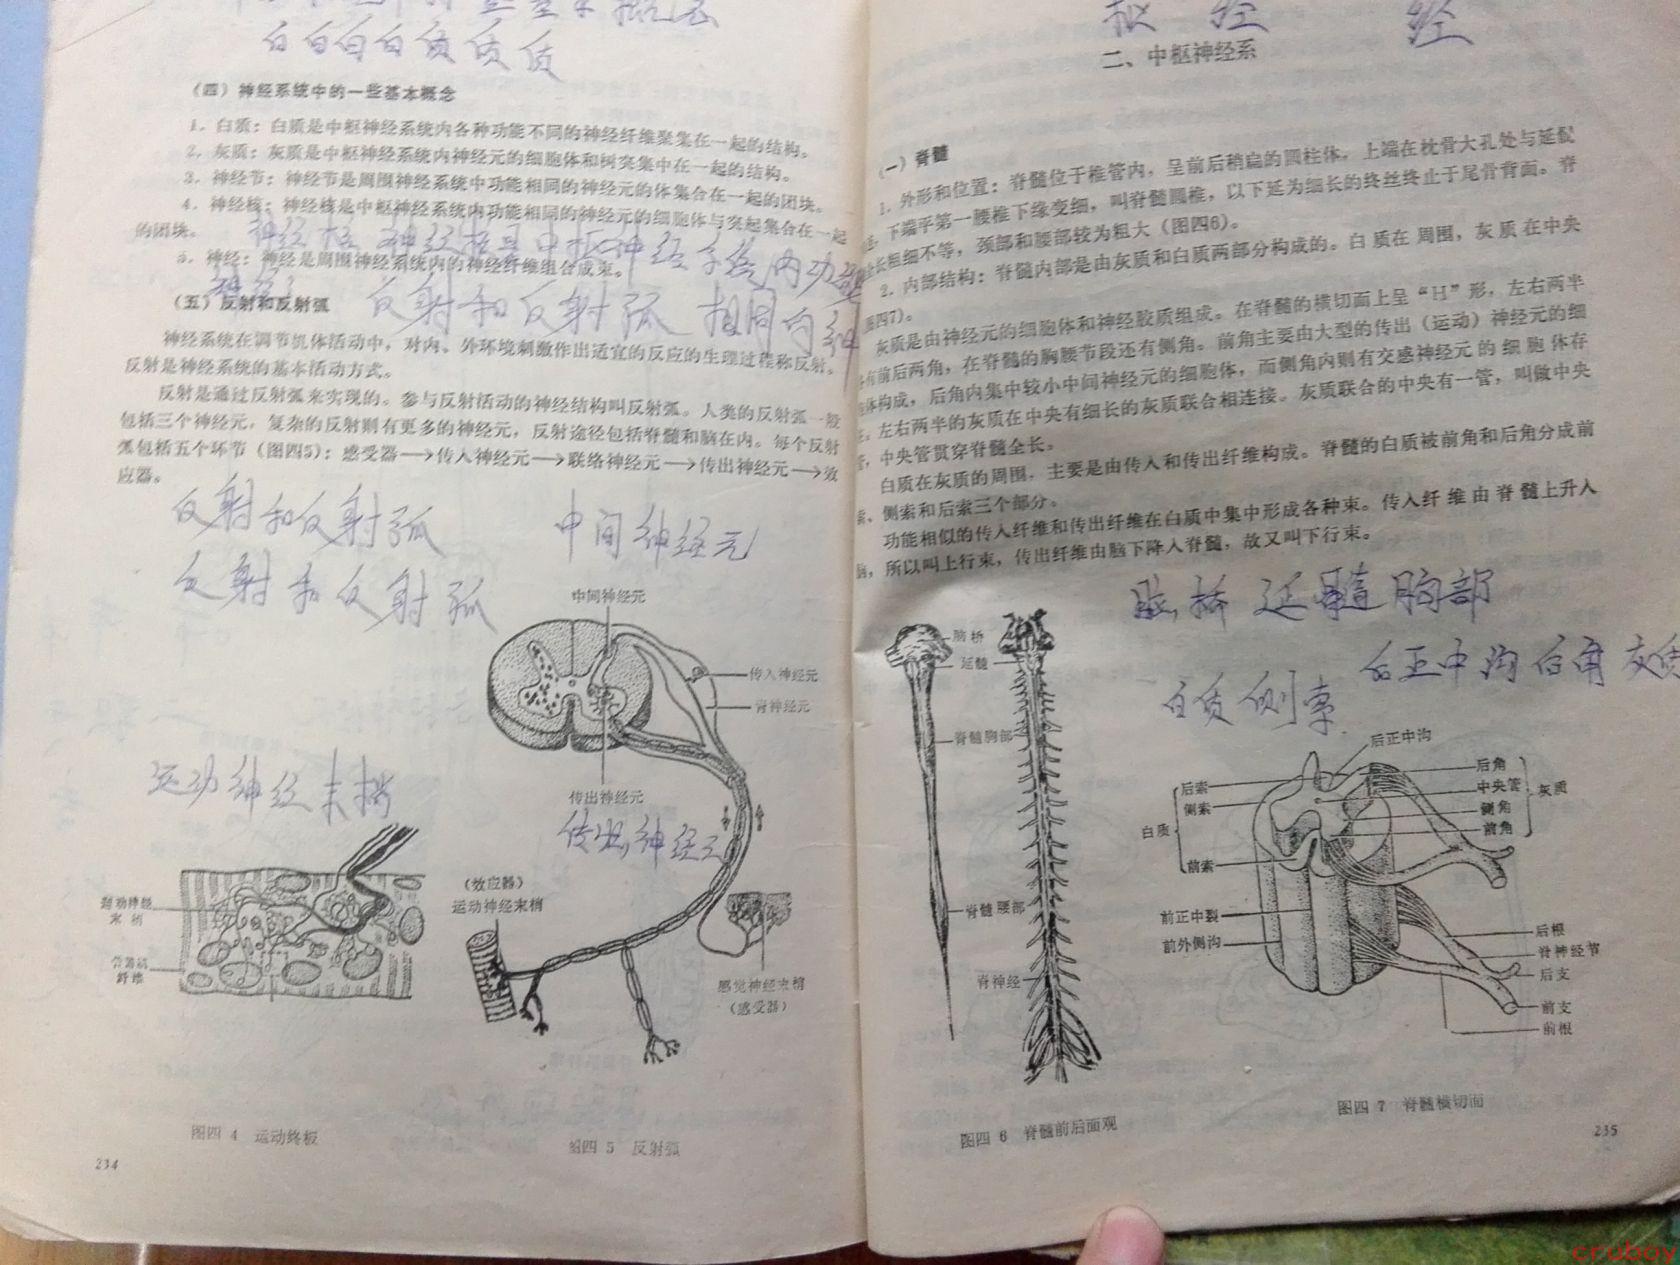 白白白白质质质
（四）神经系统中的一些基本概念
1．白质：白质是中枢神经系统内各种功能不同的神经纤维聚集在一起的结构。
2．灰质：灰质是中枢神经系统内神经元的细胞体和树突集中在一起的结构。
3．神经节：神经节是周围神经系统中功能相同的神经元的体集合在一起的团块。
4．神经核：神经核是中枢神经系统内功能相同的神经元的细胞体与突起集合在一起
的团块。
5．神经：神经是周围神经系统内的神经纤维组合成束。
（五）反射和反射弧
反射和反射弧 相同的细
神经系统在调节机体活动中，对内、外环境刺激作出适宜的反应的生理过程称反射。
反射是神经系统的基本活动方式。
反射是通过反射弧来实现的。参与反射活动的神经结构叫反射弧。人类的反射弧一般
包括三个神经元，复杂的反射则有更多的神经元，反射途径包括脊髓和脑在内。每个反射
弧包括五个环节（图四5）：感受器→传入神经元→联络神经元→传出神经元→效
应器。
反射和反射弧
中间神经元
反射和反射弧
中间神经元
传入神经元
脊神经元
运动神经末梢
传出神经元
传出神经元
（效应器）
运动神经末梢
运动神经
末梢
纤维
感觉神经末梢
（感受器）
图四 4 运动终板
图四 5 反射弧
234
经 经
二、中枢神经系
（一）脊髓
1．外形和位置：脊髓位于椎管内，呈前后稍扁的圆柱体。上端在枕骨大孔处与延髓
下端平第一腰椎下缘变细，叫脊髓圆椎，以下延为细长的终丝终止于尾骨背面。脊
全长粗细不等，颈部和腰部较为粗大（图四6）。
2．内部结构：脊髓内部是由灰质和白质两部分构成的。白质在周围，灰质在中央
图四7）。
灰质是由神经元的细胞体和神经胶质组成。在脊髓的横切面上呈“H”形，左右两半
有前后两角，在脊髓的胸腰节段还有侧角。前角主要由大型的传出（运动）神经元的细
胞体构成，后角内集中较小中间神经元的细胞体，而侧角内则有交感神经元的细胞体存
左右两半的灰质在中央有细长的灰质联合相连接。灰质联合的中央有一管，叫做中央
管，中央管贯穿脊髓全长。
白质在灰质的周围，主要是由传入和传出纤维构成。脊髓的白质被前角和后角分成前
索、侧索和后索三个部分。
功能相似的传入纤维和传出纤维在白质中集中形成各种束。传入纤维由脊髓上升入
脑，所以叫上行束，传出纤维由脑下降入脊髓，故又叫下行束。
脑桥 延髓 胸部
白正中沟 白角
白质 侧索
脑桥
延髓
脊髓胸部
脊髓腰部
脊神经
后正中沟
后索
侧索
白质
前索
前正中裂
前外侧沟
后角
中央管
侧角
前角
灰质
后根
脊神经节
后支
前支
前根
图四 6 脊髓前后面观
图四 7 脊髓横切面
235
cruboy